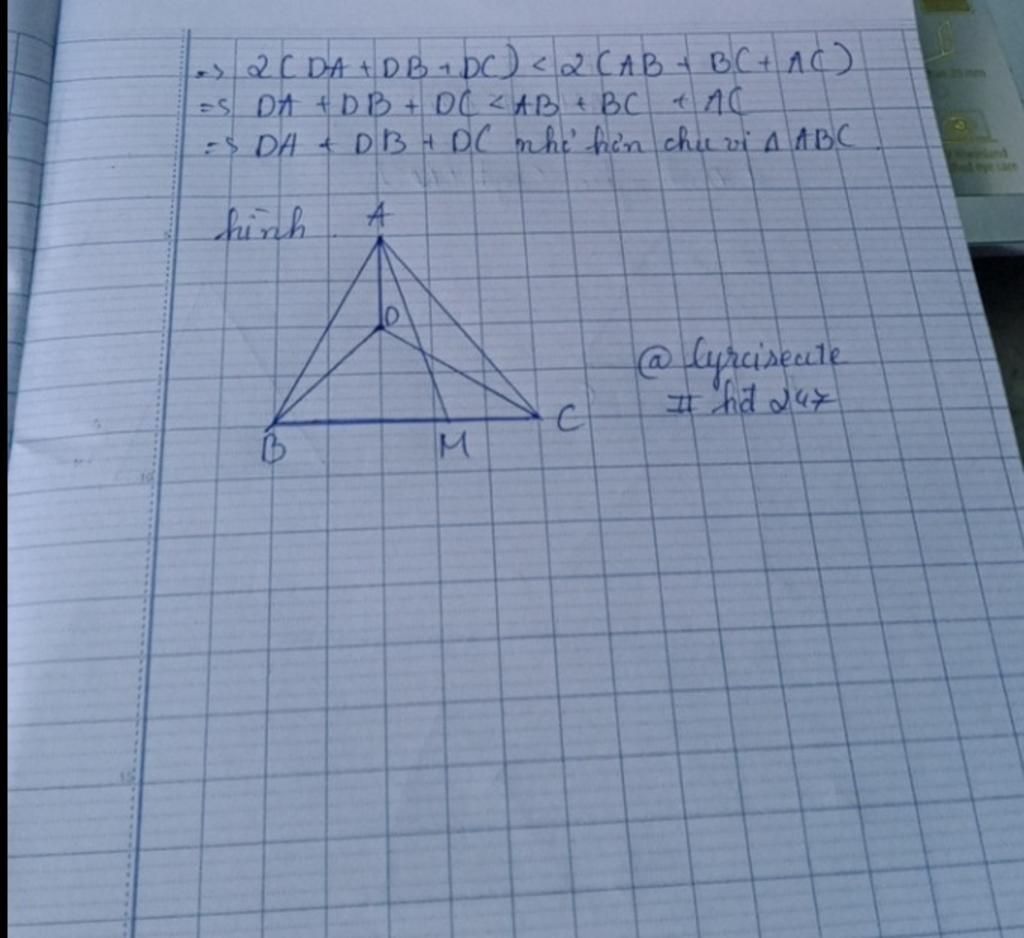 => 2(DA + DB + DC) < 2(AB + BC + AC)
=> DA + DB + DC < AB + BC + AC
=> DA + DB + DC nhỏ hơn chu vi Δ ABC
hình
A
D
B
M
C
@ lyrciseule
# hd 247